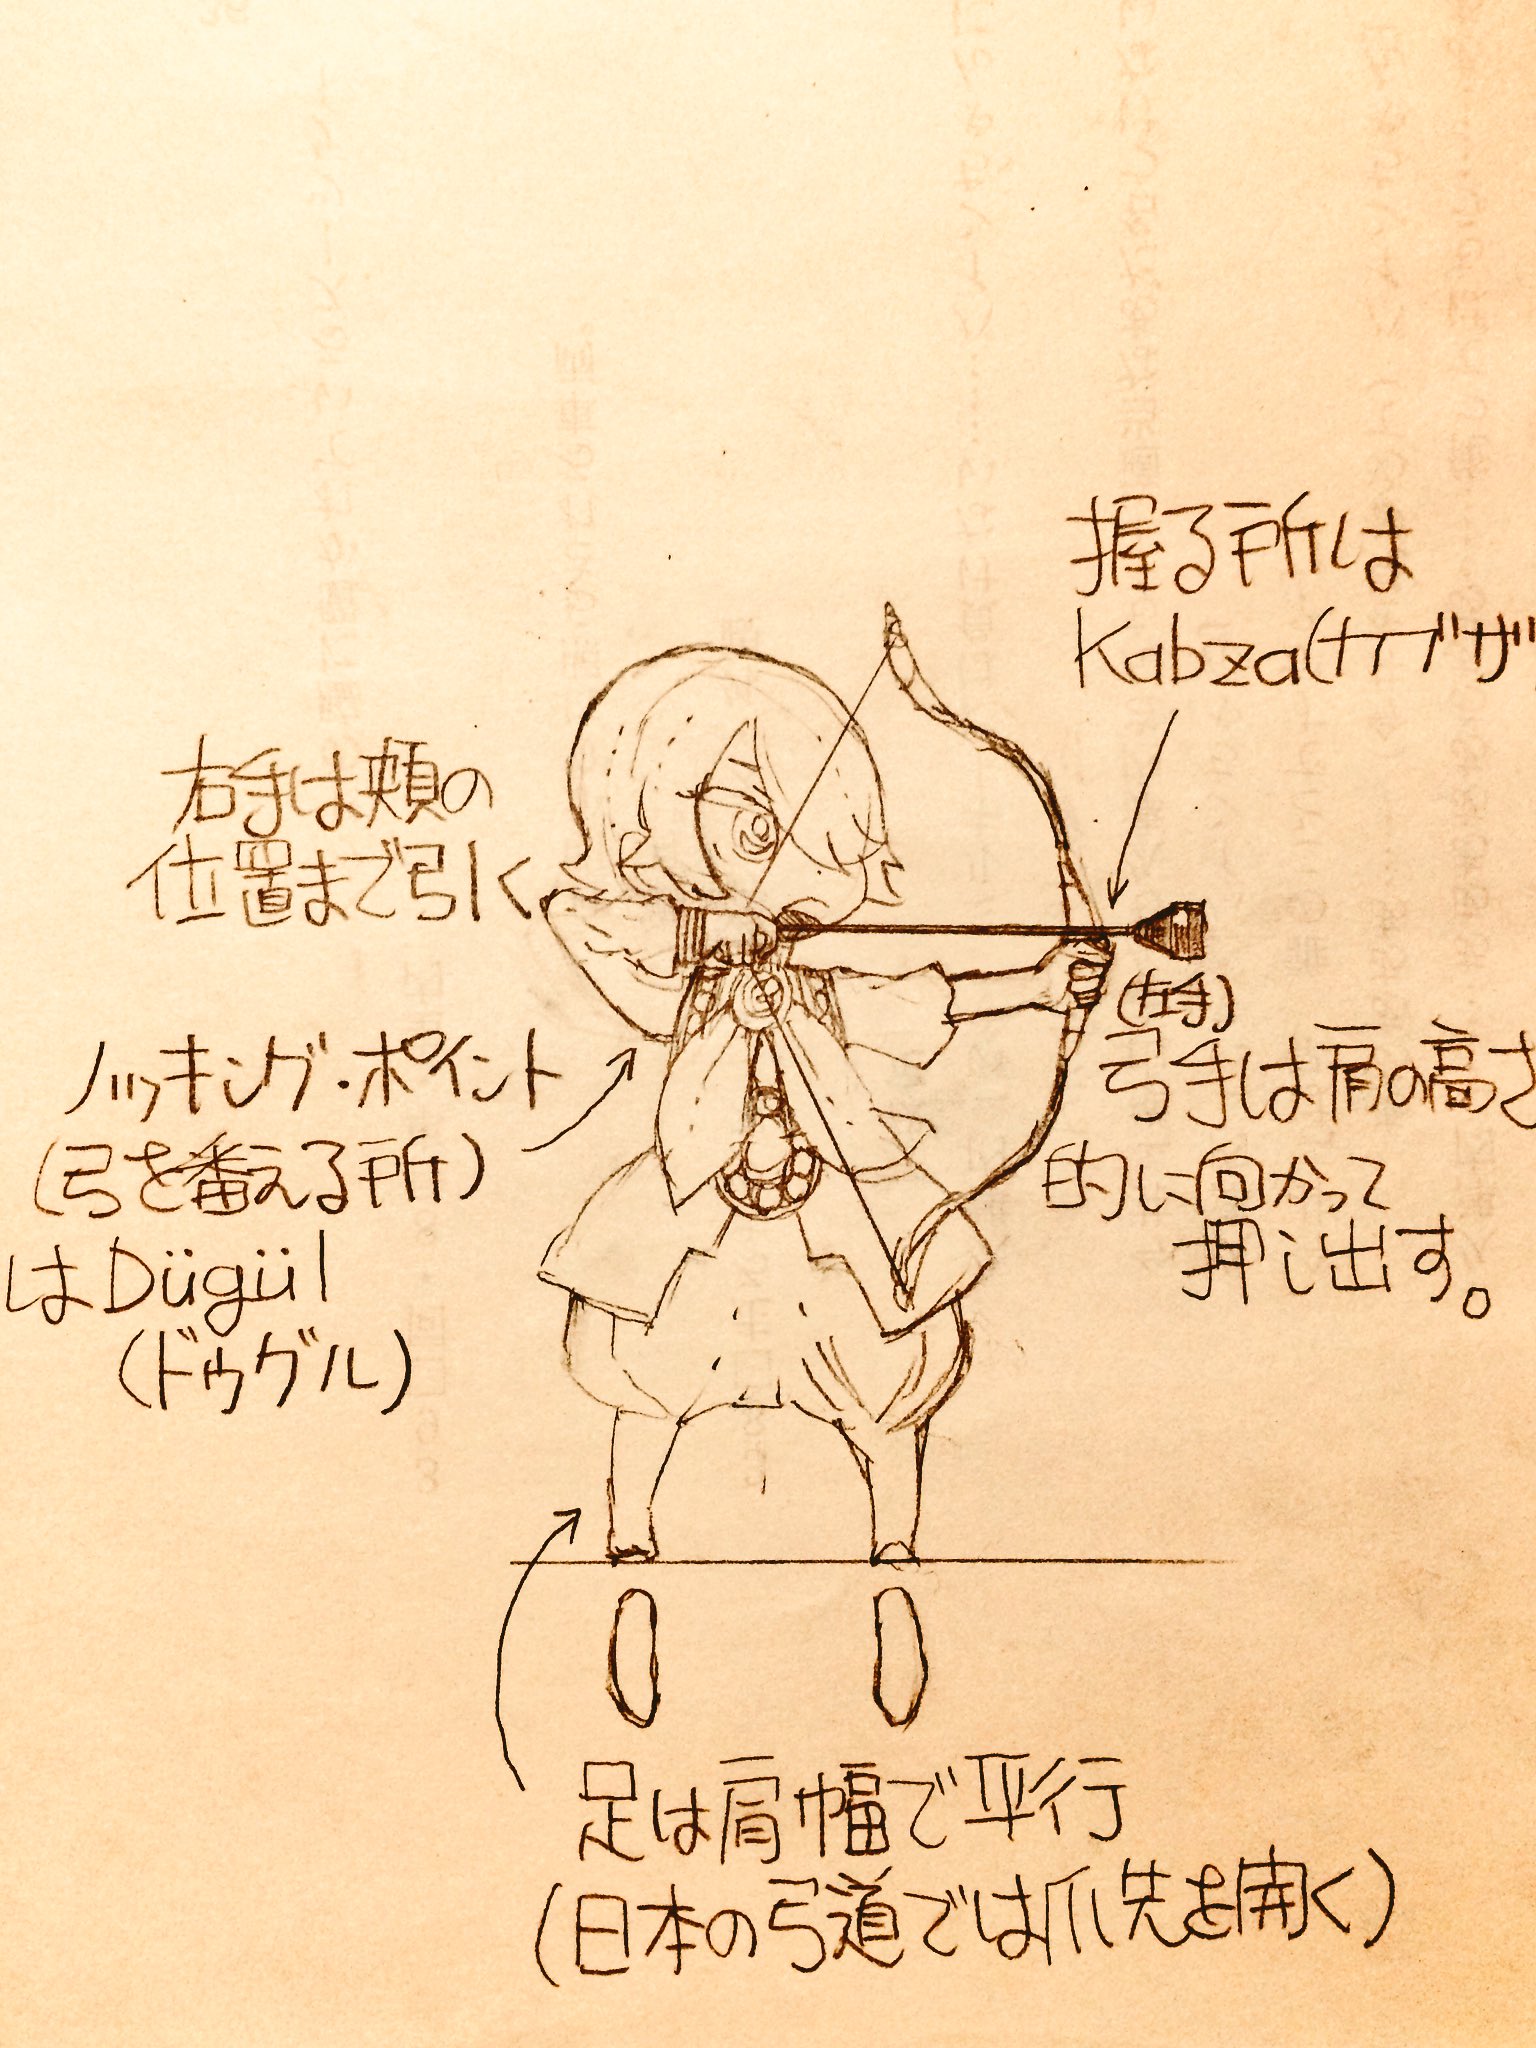 握る所は
Kabza(カブザ
右手は頬の
位置まで引く
(左手)
弓手は肩の高さ
的に向かって
押し出す。
ノッキング・ポイント
(弓を番える所)
はDügül
(ドゥグル)
足は肩幅で平行
(日本の弓道では爪先を開く)